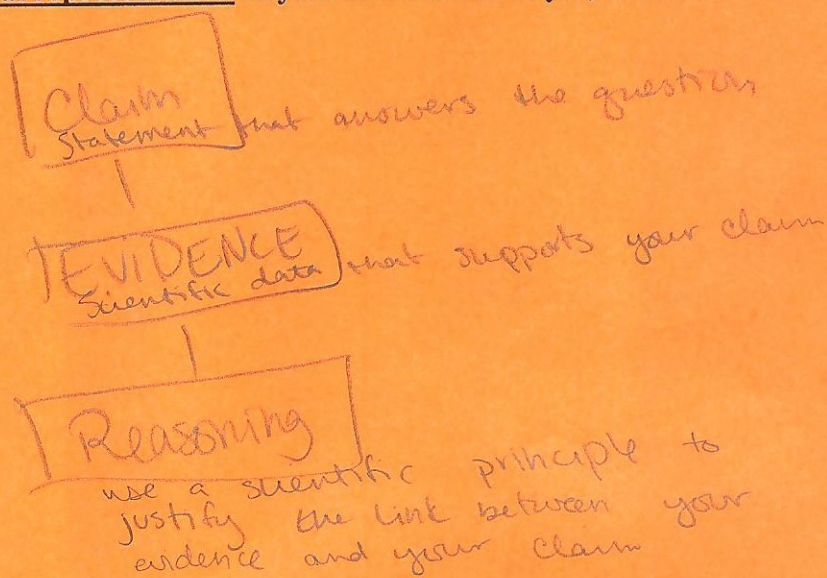 Claim
Statement that answers the question
EVIDENCE
Scientific data that supports your claim
Reasoning
use a scientific principle to
justify the link between your
evidence and your claim